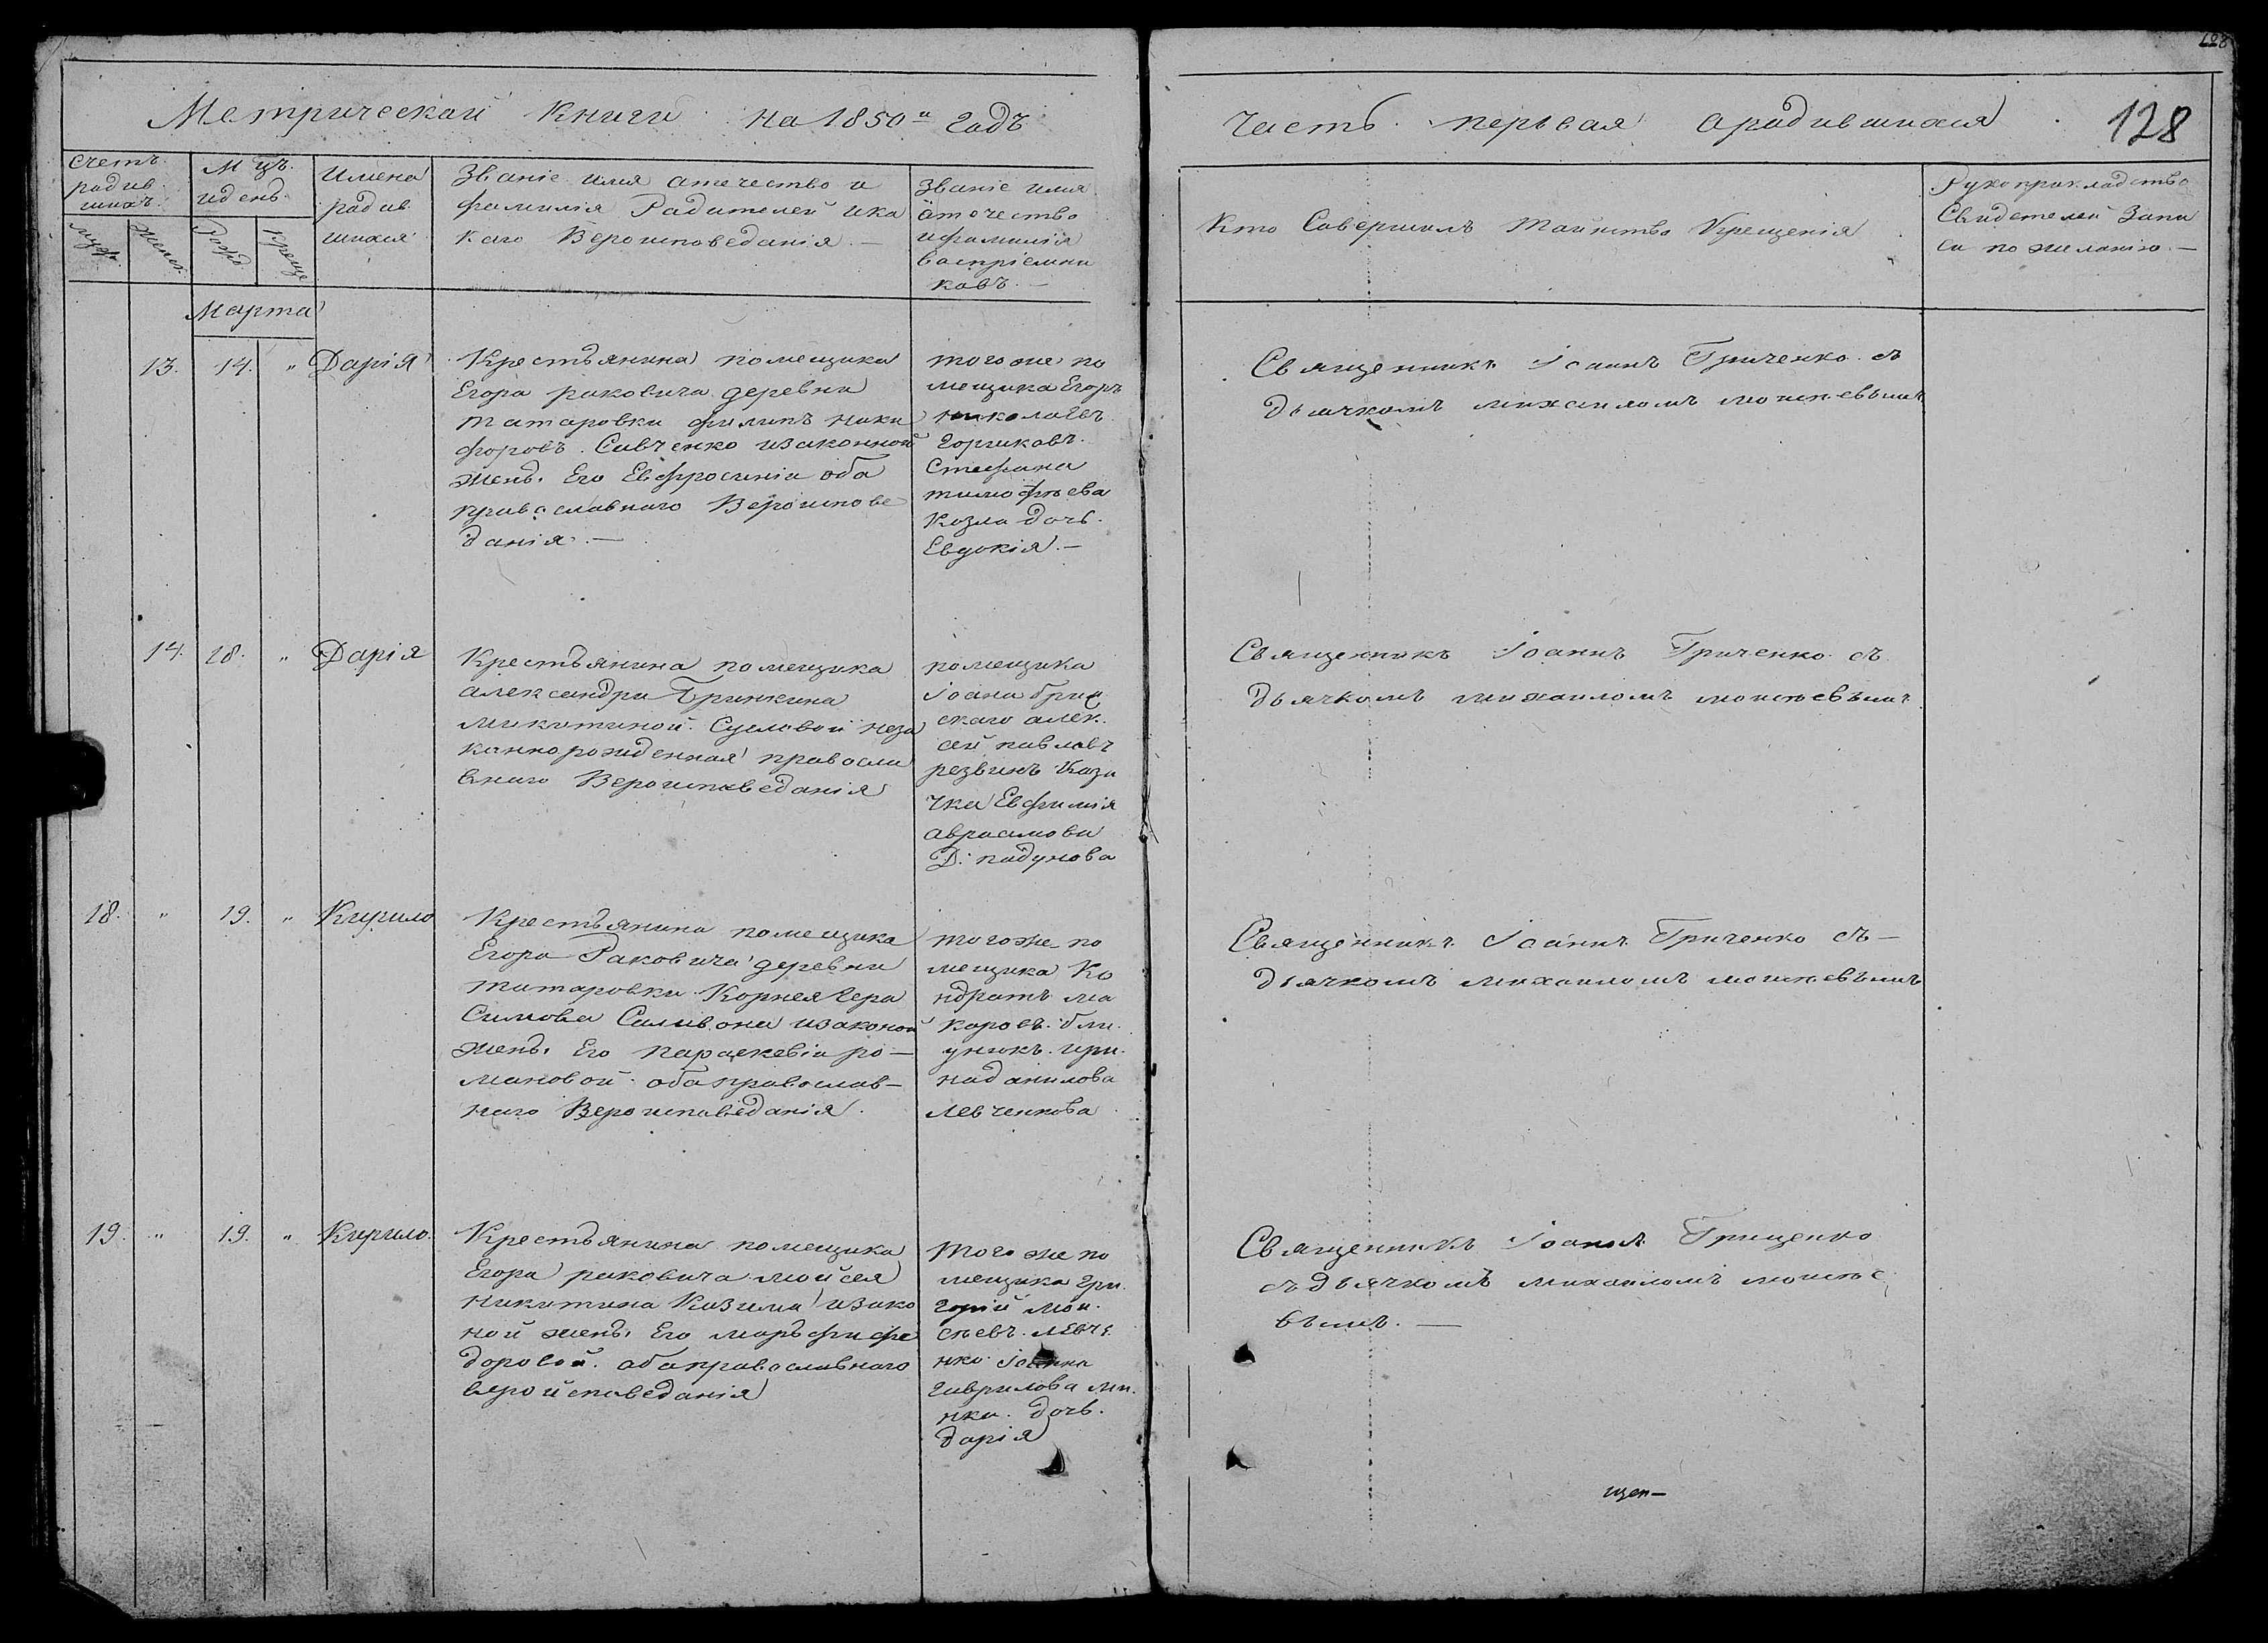 128
Метрической Книги на 1850й годъ
часть первая ородившихся
128
Счетъ
родив
шихъ
М цъ
идень
Имена
родив
шихся
муж.
женск.
Рожд
креще
Званіе имя отечество и
фамилія Родителей ика
каго Вероисповеданія. —
Званіе имя
отечество
ифамилія
воспріемни
ковъ. —
Кто Совершилъ Таинство Крещенія
Рукоприкладство
Свидетелей Запи
си по желанію. —
Марта
13.
14.
"
Дарія
Крестьянина помещика
Егора раковича деревни
татаровки филипъ ники
форовъ. Савченко изаконной
жены Его Евфросиніи оба
православнаго Вероиспове
данія. —
того же по
мещика Егоръ
николаевъ
горшковъ.
Стефана
тимофѣева
Козла дочь.
Евдокія. —
Священникъ Іоаннъ Гриченко съ
дьячкомъ михаиломъ моисѣевымъ
14.
18.
"
Дарія
Крестьянина помещика
александри
микитиной. Сусловой неза
коннорожденная правосла
внаго Вероисповеданія
помещика
Іоана
скаго алек.
сей павловъ
резвинъ Каза
чка Евфимія
аврамова
Д. падунова
Священникъ Іоаннъ Гриченко съ
дьячкомъ михаиломъ моисѣевымъ
18.
"
19.
"
Кирило
Крестьянина помещика
Егора Раковича деревни
татаровки Корнея гера
Симова Саливона изаконой
жены Его параскевіи ро—
мановой. оба православ—
наго Вероисповеданія.
того же по
мещика Ко
ндратъ ма
каровъ.
ири.
на данилова
левченкова
Священникъ Іоаннъ Гриченко съ—
дьячкомъ михаиломъ моисѣевымъ
19.
"
19.
"
Кирило.
Крестьянина помещика
Егора раковича мойсея
никитина Казима изако
ной жены Его марьфи фе
доровой. оба православнаго
веройсповеданія
того же по
мещика гри.
горій мои.
сѣевъ. левче
нко Іоанна
гаврилова ми.
нки. дочь.
дарія
Священникъ Іоаннъ Грищенко
съ дьячкомъ михаиломъ моисѣе
вымъ. —
щен—